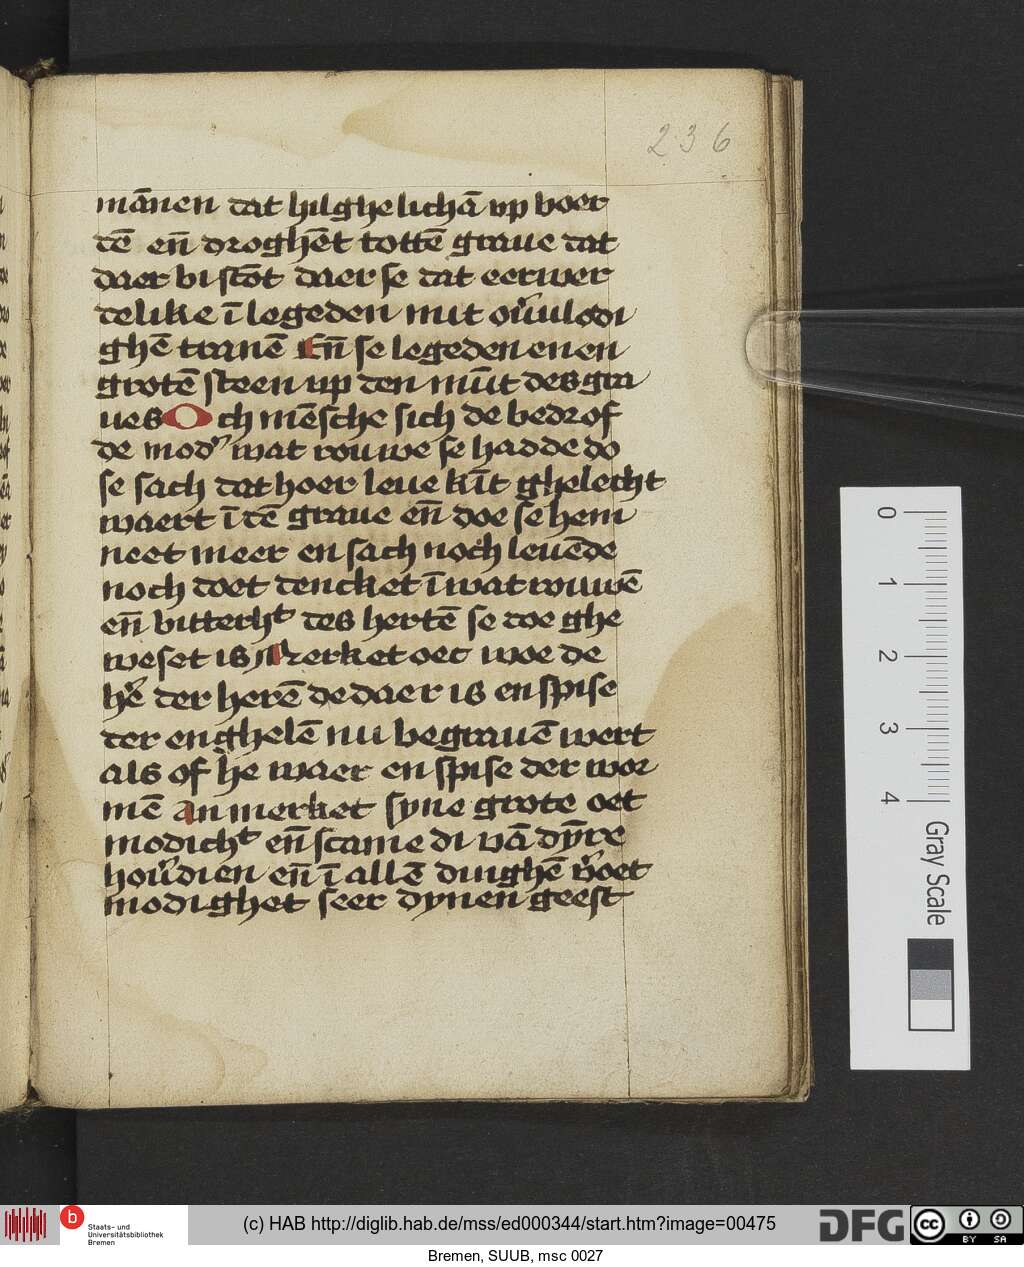 236
mānen dat hilghe lichā up boer
dē en̄ droghēt tottē graue dat
daer bi stōt daer se dat eerwer
delike ī legeden mit
ghē tranē En̄ se legeden enen
grotē steen up den mūt des gra
ues Och mēsche sich de bedrof
de mod' wat rouwe se hadde do
se sach dat hoer leue kīt ghelecht
waert ī dē graue en̄ doe se hem
neet meer en sach noch leuēde
noch doet dencket ī wat rouwē
en̄ bitterhᵗ des hertē se doe ghe
weset is Merket oec woe de
hē der herē de daer is en spise
der enghelē nu begrauē wert
als of he waer en spise der wor
mē An merket syne grote oet
modichᵗ en̄ scame di vā dȳre
houͤdien en̄ ī allē dinghē v'oet
modighet seer dynen geest
0
1
2
3
4
Gray Scale
b
Staats- und
Universitätsbibliothek
Bremen
(c) HAB http://diglib.hab.de/mss/ed000344/start.htm?image=00475
DFG
cc
BY SA
Bremen, SUUB, msc 0027